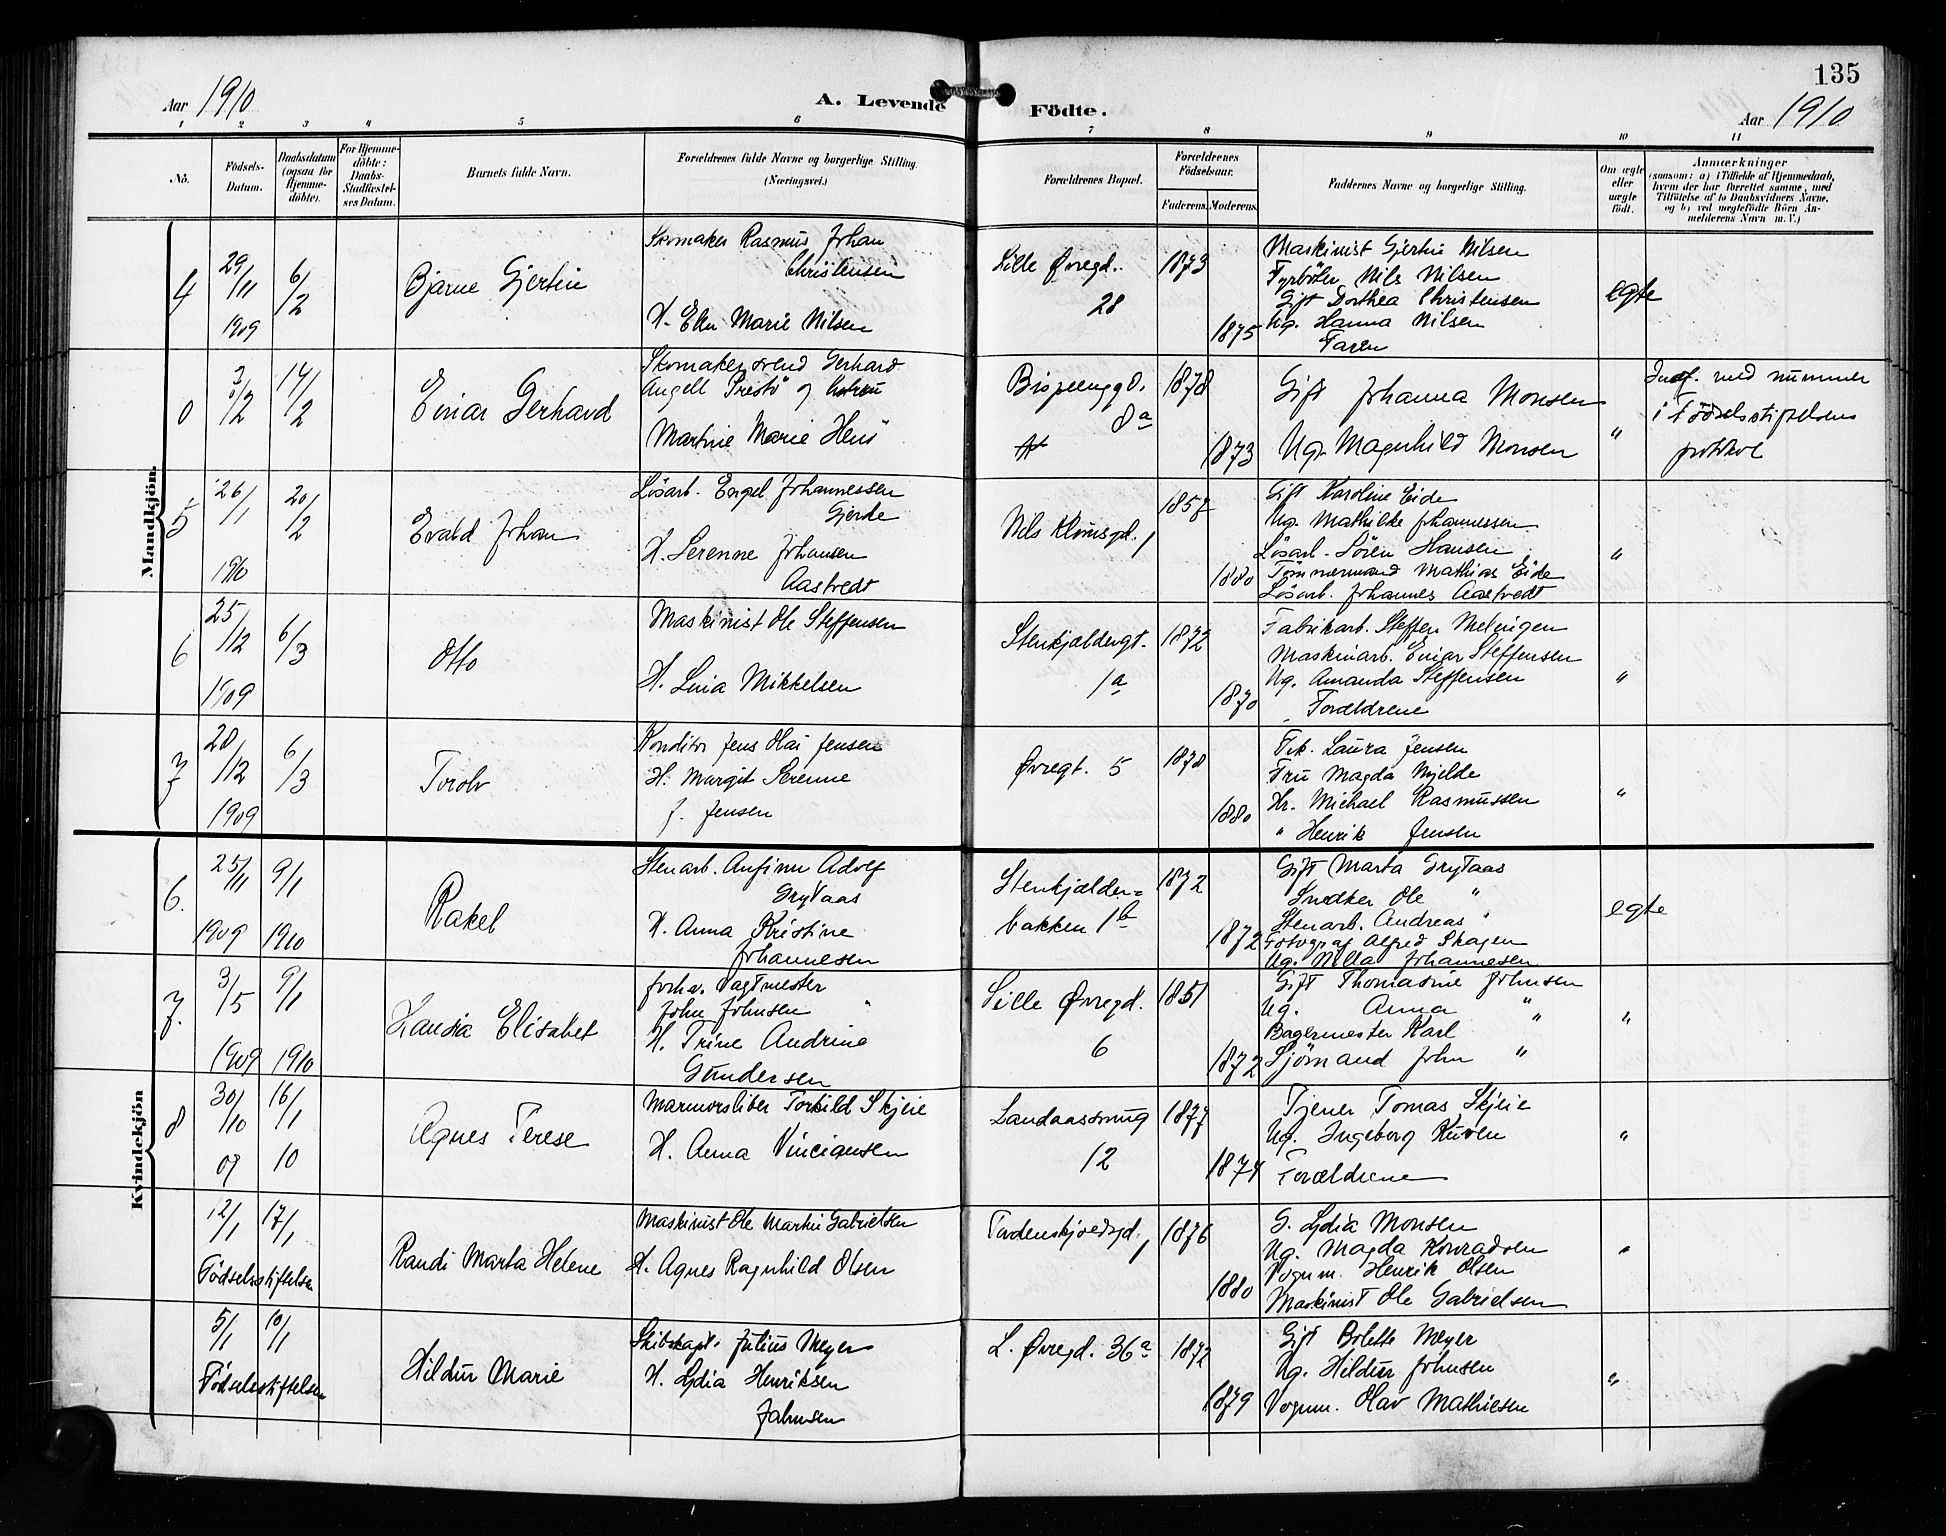 135
Aar 1910
A. Levende Födte.
Aar 1910
1 2 3 4 5 6 7 8 9 10 11
Nò.
Födsels-Datum.
Daabsdatum (ogsaa for Hjemme-döbte).
For Hjemme-döbte: Daabs-Stadfæstel-ses Datum.
Barnets fulde Navn.
Forældrenes fulde Navne og borgerlige Stilling.
(Næringsvei.)
Forældrenes Bopæl.
Forældrenes Födselsaar.
Faderens. Moderens.
Faddernes Navne og borgerlige Stilling.
Om ægte eller uægte födt.
Anmærkninger
(saasom: a) i Tilfælde af Hjemmedaab,
hvem der har forrettet samme, med
Tilföielse af to Daabsvidners Navne.
og b) ved uægtefödte Börn An-
melderens Navn m. V.)
Mandkjön.
4
29/11 1909
6/2
Bjarne Gjertin
Skomaker Rasmus Johan
Christensen
H. Elen Marie Nilsen
Lille Øvregd.
28
1873
1875
Maskinist Gjertin Nilsen
Fyrböter Nils Nilsen
Gift Dorthea Christensen
Ug. Hanna Nilsen
Faren
egte
0
3/2
14/2
Einar Gerhard
Skomakersvend Gerhard
Angell Prestö og hustru
Martine Marie Henö
Bispeenggd.
8a
1878
1873
Gift Johanna Monsen
Ug. Magnhild Monsen
"
Indf. med nummer
i Födselsstiftelsens
protokol
5
26/1 1910
20/2
Evald Johan
Lösarb. Engel Johannessen
Gjerde
H. Serenne Johansen
Aastvedt
Nils Klomsgd. 1
1857
1880
Gift Karoline Eide
Ug. Mathilde Johannessen
Lösarb. Sören Hansen
Tömmermand Mathias Eide
Lösarb. Johannes Aastvedt
"
6
25/12 1909
6/3
Otto
Maskinist Ole Steffensen
H. Lina Mikkelsen
Stenkjeldergt.
1a
1872
1870
Fabrikarb. Steffen Melingen
Maskinarb. Einar Steffensen
Ug. Amanda Steffensen
Forældrene
"
7
28/12 1909
6/3
Torolv
Konditor Jens Hai Jensen
H. Margit Serenne
f. Jensen
Øvregt. 5
1878
1880
Frk. Laura Jensen
Fru Magda Mjelde
Hr. Michael Rasmussen
" Henrik Jensen
"
Kvindekjön
6.
25/11 1909
9/1 1910
Rakel
Stenarb. Anfinn Adolf
Grytaas
H. Anna Kristine
Johannesen
Stenkjelder=
bakken 1b
1872
1872
Gift Marta Grytaas
Snedker Ole "
Stenarb. Andreas "
Fotograf Alfred Skagen
Ug. Nilla Johannesen
egte
7.
3/5 1909
9/1 1910
Hansia Elisabet
forhv. Vagtmester
John Johnsen
H. Trine Andrine
Gundersen
Lille Øvregd.
6
1851
1872
Gift Thomasine Johnsen
Ug. Anna "
Bagermester Karl "
Sjömand John "
"
8
30/10 09
16/1 10
Agnes Terese
Marmorsliber Torkild Skjeie
H. Anna Vinciansen
Landaassmug
12
1877
1874
Tjener Tomas Skjeie
Ug. Ingeborg Kuven
Forældrene
"
12/1
17/1
Födselsstiftelsen
Randi Marta Helene
Maskinist Ole Martin Gabrielsen
H. Agnes Ragnhild Olsen
Tordenskjoldsgd. 1
1876
1880
G. Lydia Monsen
Ug. Magda Konradsen
Vognm. Henrik Olsen
Maskinist Ole Gabrielsen
"
5/1
10/1
Födselsstiftelsen
Hildur Marie
Skibskapt. Julius Meyer
H. Lydia Henriksen
Johnsen
L. Øvregd. 36a
1872
1879
Gift Bolette Meyer
Ug. Hildur Johnsen
Vognm. Olav Mathiesen
"